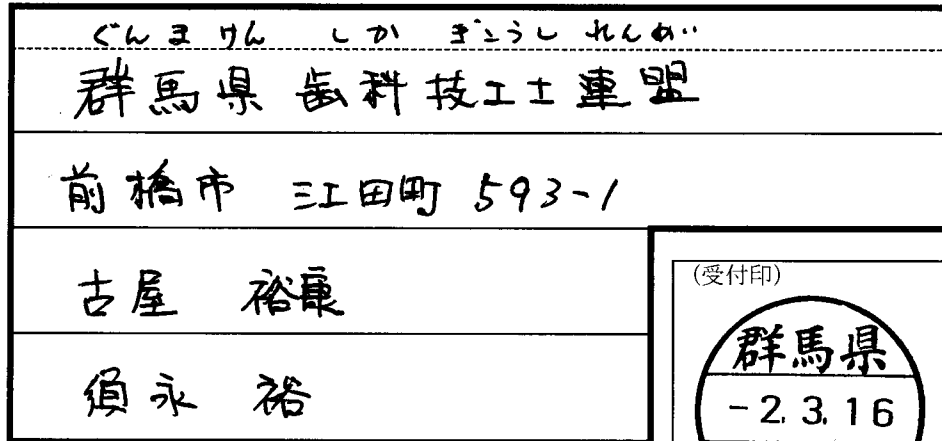 ぐんまけん しか ぎこうし れんめい
群馬県 歯科技工士連盟
前橋市 江田町 593-1
古屋 裕康
須永 裕
(受付印)
群馬県
-2.3.16